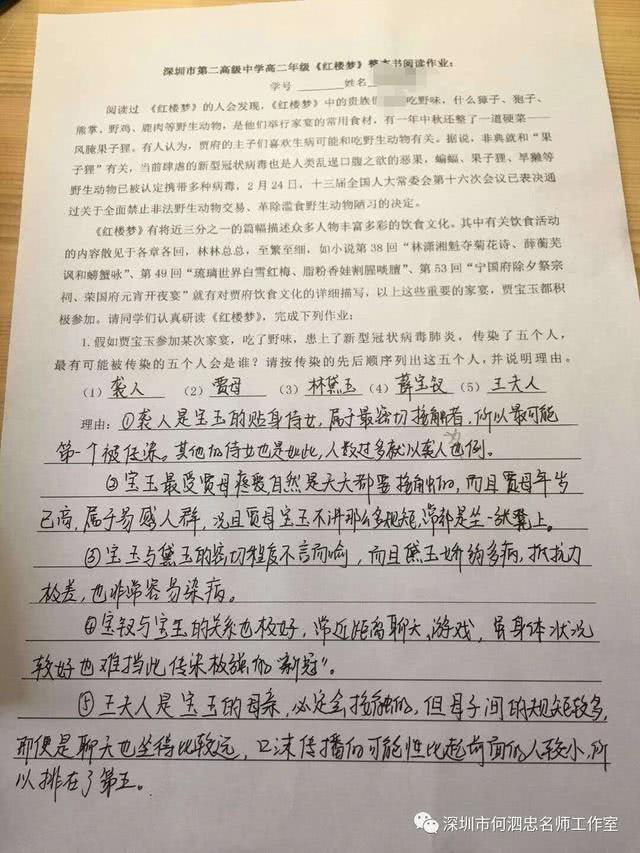 深圳市第二高级中学高二年级《红楼梦》整本书阅读作业：
学号 姓名
阅读过《红楼梦》的人会发现，《红楼梦》中的贵族 吃野味，什么獐子、狍子、
熊掌、野鸡、鹿肉等野生动物，是他们举行家宴的常用食材，有一年中秋还整了一道硬菜——
风腌果子狸。有人认为，贾府的主子们喜欢生病可能和吃野生动物有关。据说，非典就和“果
子狸”有关，当前肆虐的新型冠状病毒也是人类乱逞口腹之欲的恶果，蝙蝠、果子狸、旱獭等
野生动物已被认定携带多种病毒，2 月 24 日，十三届全国人大常委会第十六次会议已表决通
过关于全面禁止非法野生动物交易、革除滥食野生动物陋习的决定。
《红楼梦》有将近三分之一的篇幅描述众多人物丰富多彩的饮食文化。其中有关饮食活动
的内容散见于各章各回，林林总总，至繁至细，如小说第 38 回“林潇湘魁夺菊花诗、薛蘅芜
讽和螃蟹咏”、第 49 回“琉璃世界白雪红梅、脂粉香娃割腥啖膻”、第 53 回“宁国府除夕祭宗
祠、荣国府元宵开夜宴”就有对贾府饮食文化的详细描写，以上这些重要的家宴，贾宝玉都积
极参加。请同学们认真研读《红楼梦》，完成下列作业：
1. 假如贾宝玉参加某次家宴，吃了野味，患上了新型冠状病毒肺炎，传染了五个人，
最有可能被传染的五个人会是谁？请按传染的先后顺序列出这五个人，并说明理由。
（1）袭人 （2）贾母 （3）林黛玉 （4）薛宝钗 （5）王夫人
理由：①袭人是宝玉的贴身侍女，属于最密切接触者，所以最可能
第一个被传染。其他的侍女也是如此，人数过多就以袭人为例。
②宝玉最受贾母疼爱自然是天天都要接触的，而且贾母年岁
已高，属于易感人群，况且贾母宝玉不讲那么多规矩，常都是坐一张凳上。
③宝玉与黛玉的密切程度不言而喻，而且黛玉娇弱多病，抵抗力
极差，也非常容易染病。
④宝钗与宝玉的关系也极好，常近距离聊天、游戏，虽身体状况
较好也难挡此传染极强的“新冠”。
⑤王夫人是宝玉的母亲，必定会接触的，但母子间的规矩较多，
那便是聊天也坐得比较远，口沫传播的可能性比起前面的人较小，所
以排在了第五。
深圳市何泗忠名师工作室